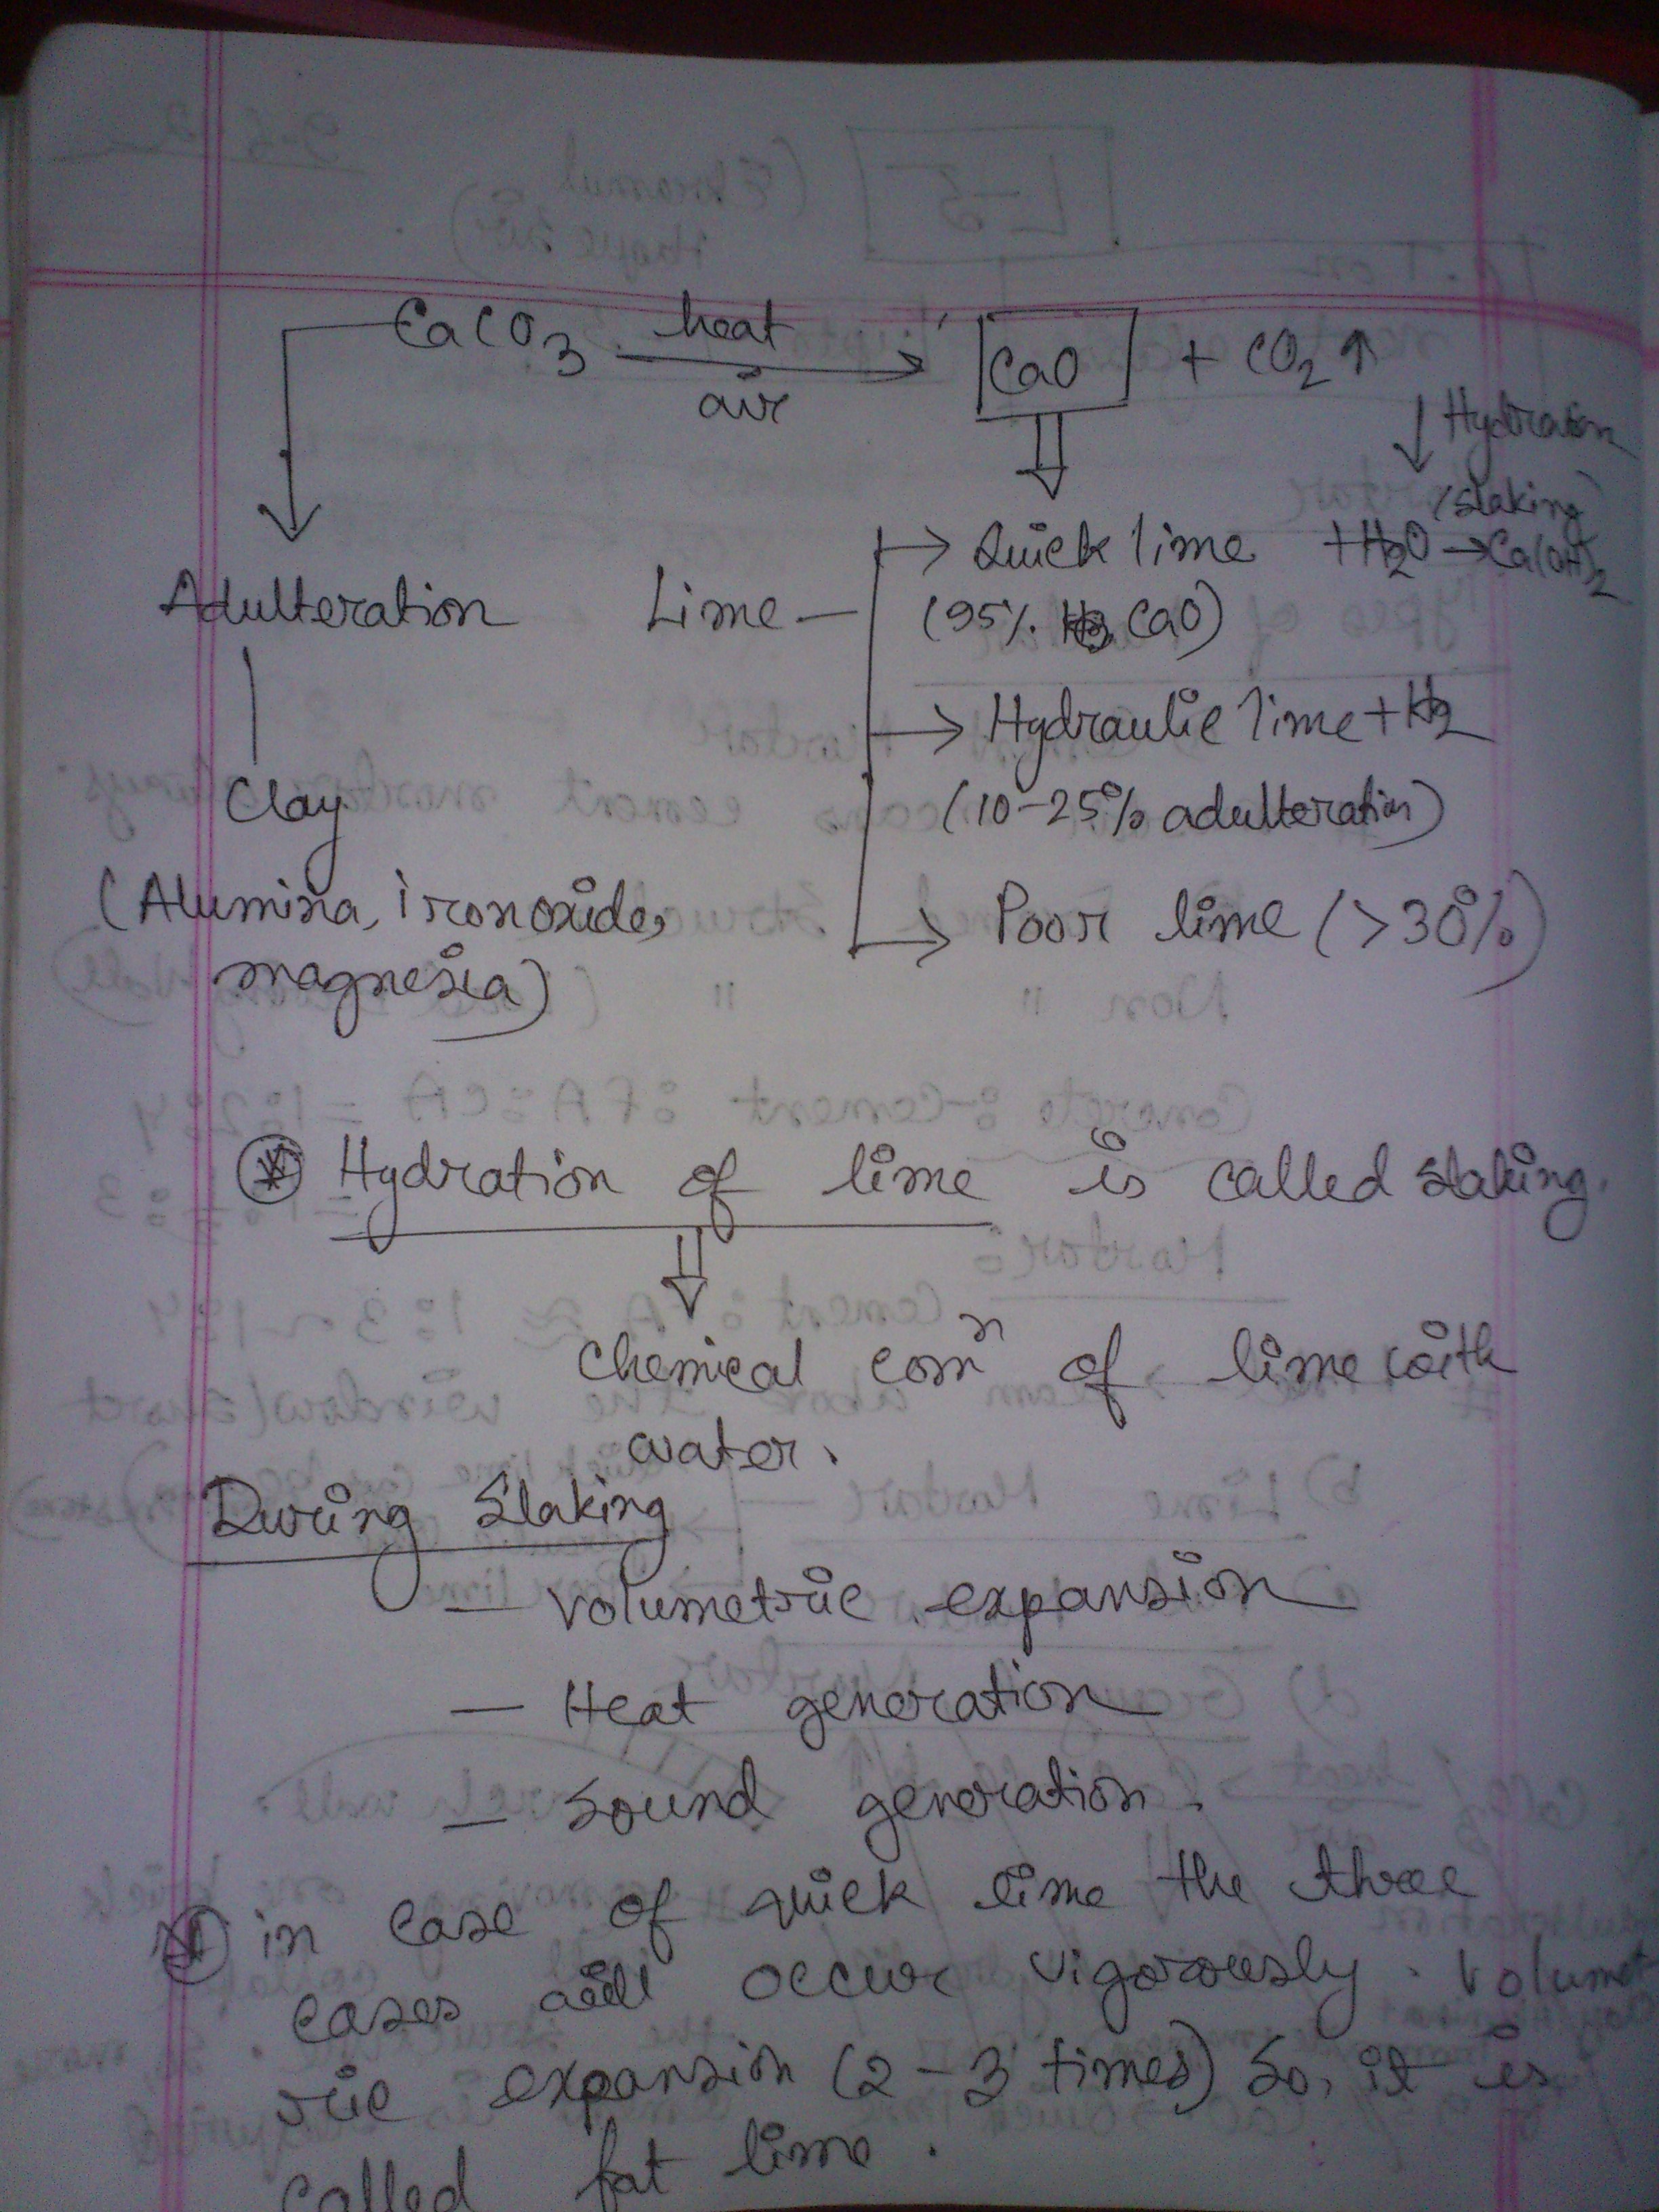 CaCO3 heat → air CaO + CO2 ↑
↓ Hydration
(slaking)
→ Quick lime + H2O → Ca(OH)2
Adulteration Lime — (95% CaO)
→ Hydraulic lime +
Clay (10-25% adulteration)
(Alumina, iron oxide, → Poor lime (>30%)
magnesia)
Hydration of lime is called slaking.
⇓
Chemical comn of lime with
water.
During Slaking
— Volumetric expansion
— Heat generation
— Sound generation.
in case of quick lime the three
cases will occur vigorously. Volumet
ric expansion (2-3 times) So, it is
called fat lime.